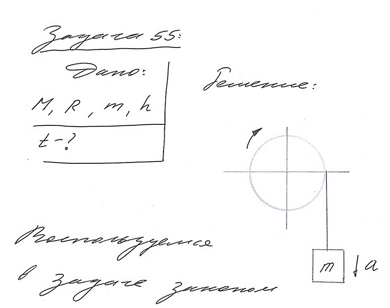 Задача 55:
Дано:
M, R, m, h
t - ?
Решение:
m
a
Воспользуемся
в задаче законом